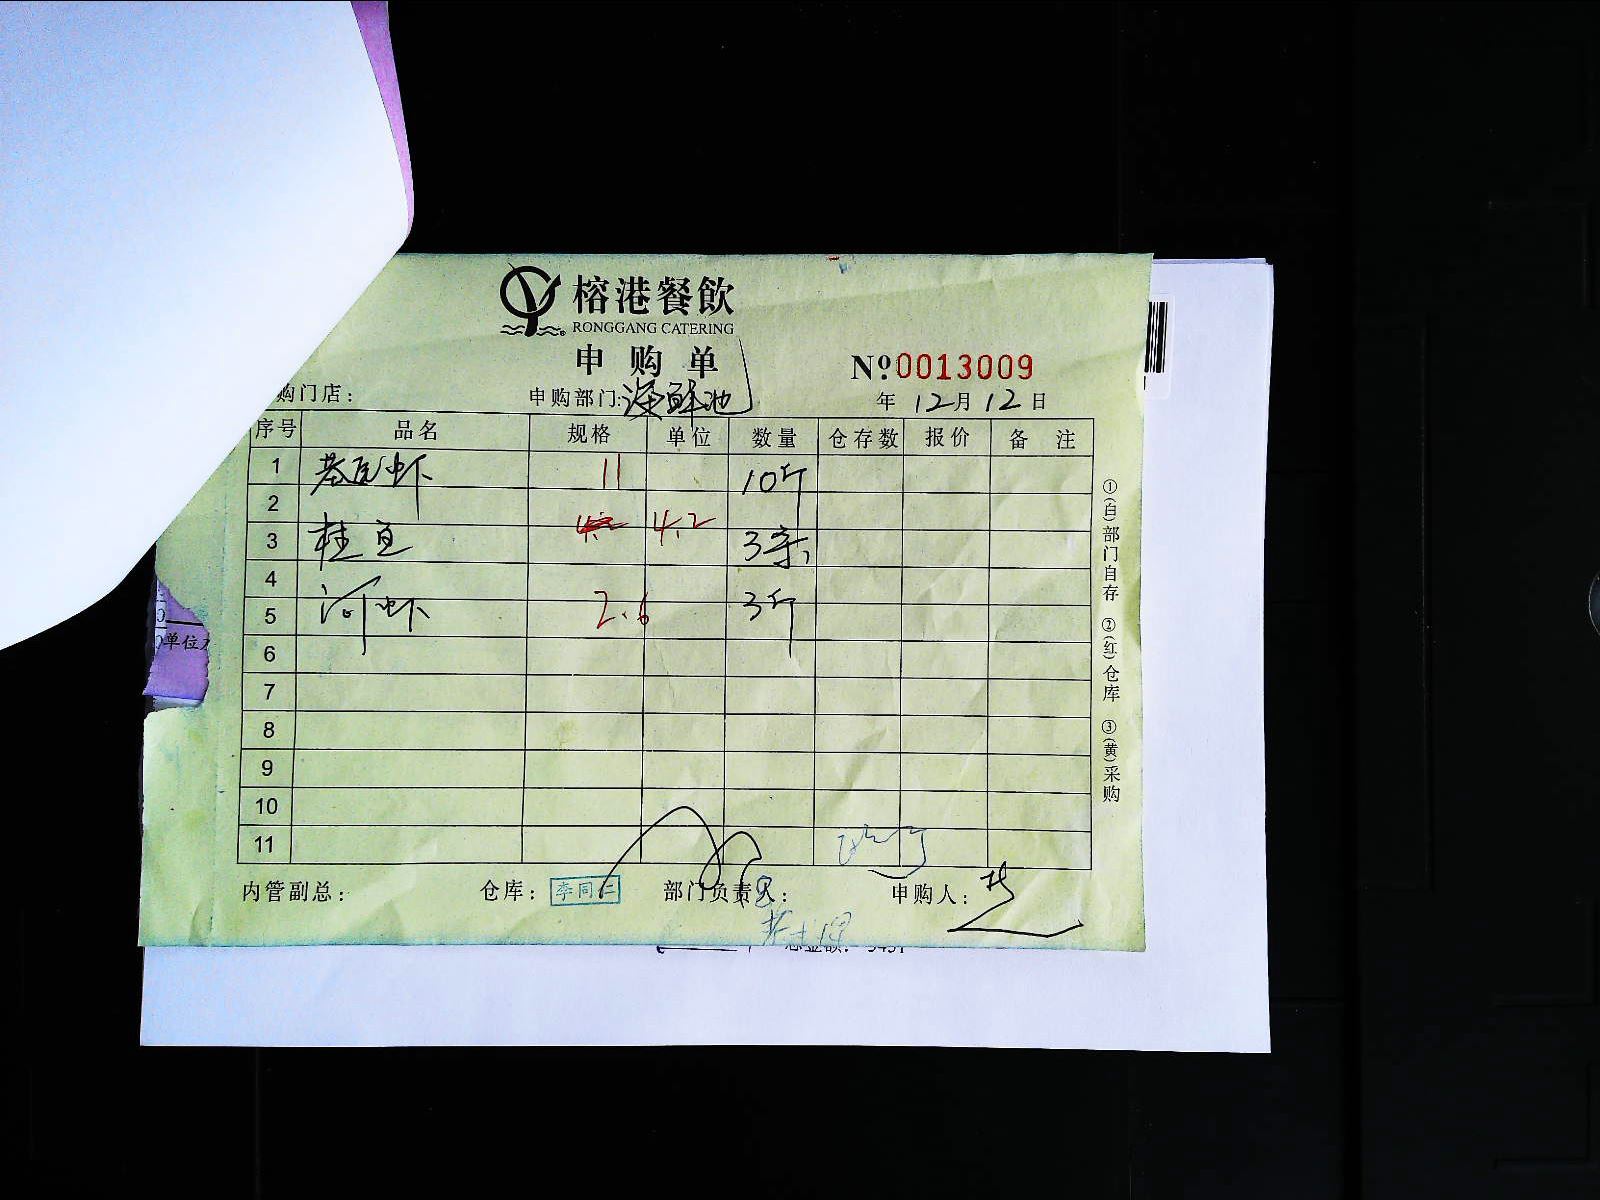 榕港餐飲
RONGGANG CATERING
申购单
Nº0013009
购门店：
申购部门：海鲜池
年 12月12日
序号 品名 规格 单位 数量 仓存数 报价 备注
1 基尾虾 11 10斤
2
3 桂鱼 4.2 3条
4
5 河虾 2.6 3斤
6
7
8
9
10
11
内管副总： 仓库：李同仁 部门负责人： 申购人：
①(白)部门自存 ②(红)仓库 ③(黄)采购
单位